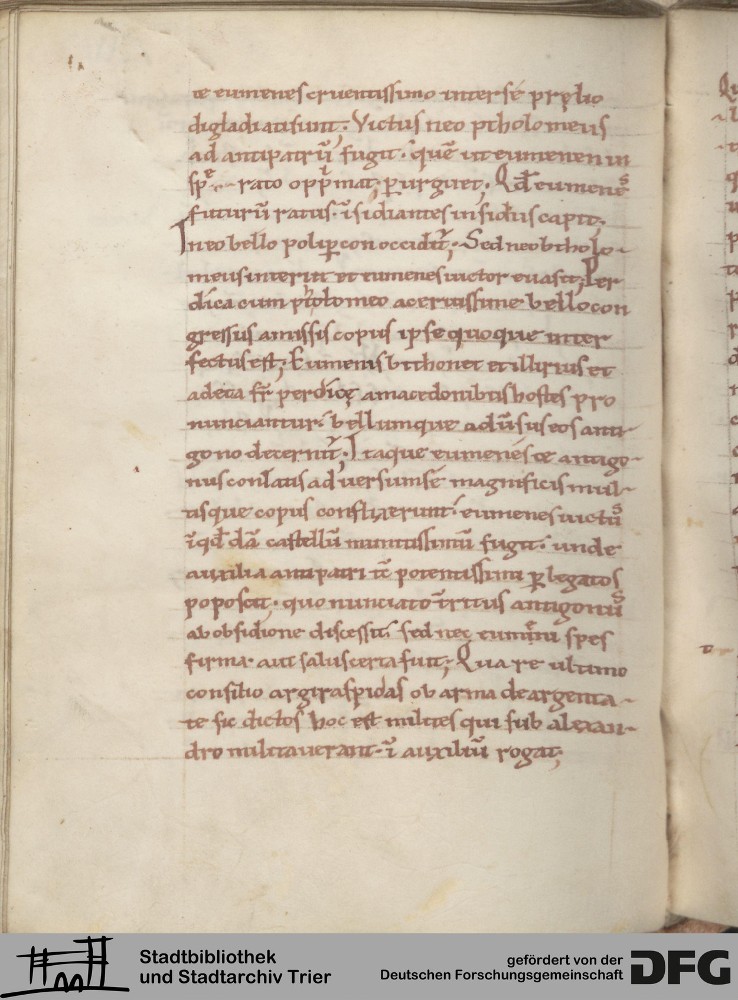 te eumenes cruentissimo inter sé prȩlio
digladiati sunt; Victus neo ptholomeus
ad antipatrū fugit. quē ut eumenen in
rato opp̄mat; ꝑurguet; Qđ eumenes
futurū ratus. īsidiantes insidiis capit;
In eo bello poliꝑcon occidit̄; Sed neobtholo-
meus interiit et eumenes uictor euasit; Per
dica cum ptolomeo acerbissime bello con
gressus amissis copiis ipse quoque inter
fectus est; Eumenis bithonet et illirius et
adeta fr̄ perdicȩ a macedonibus hostes pro
nunciantur. bellumque aduersus eos anti-
gono decernit̄; Itaque eumenes te antigo-
nus conlatis ad uersum sé magnificis mul-
tisque copiis conflixerunt. eumenes uictus
ī qđdā castellū munitissimū fugit. unde
auxilia antipatri tc̄ potentissimi ꝑ legatos
poposcit. quo nunciato t̄ritus antigonus
ab obsidione discessit. sed nec eumeni spes
firma aut salus certa fuit; Qua re ultimo
consilio argiraspidas ob arma deargenta-
te sic dictos hoc est milites qui sub alexan-
dro militauerant. ī auxiliū rogat;
Stadtbibliothek
und Stadtarchiv Trier
gefördert von der
Deutschen Forschungsgemeinschaft
DFG